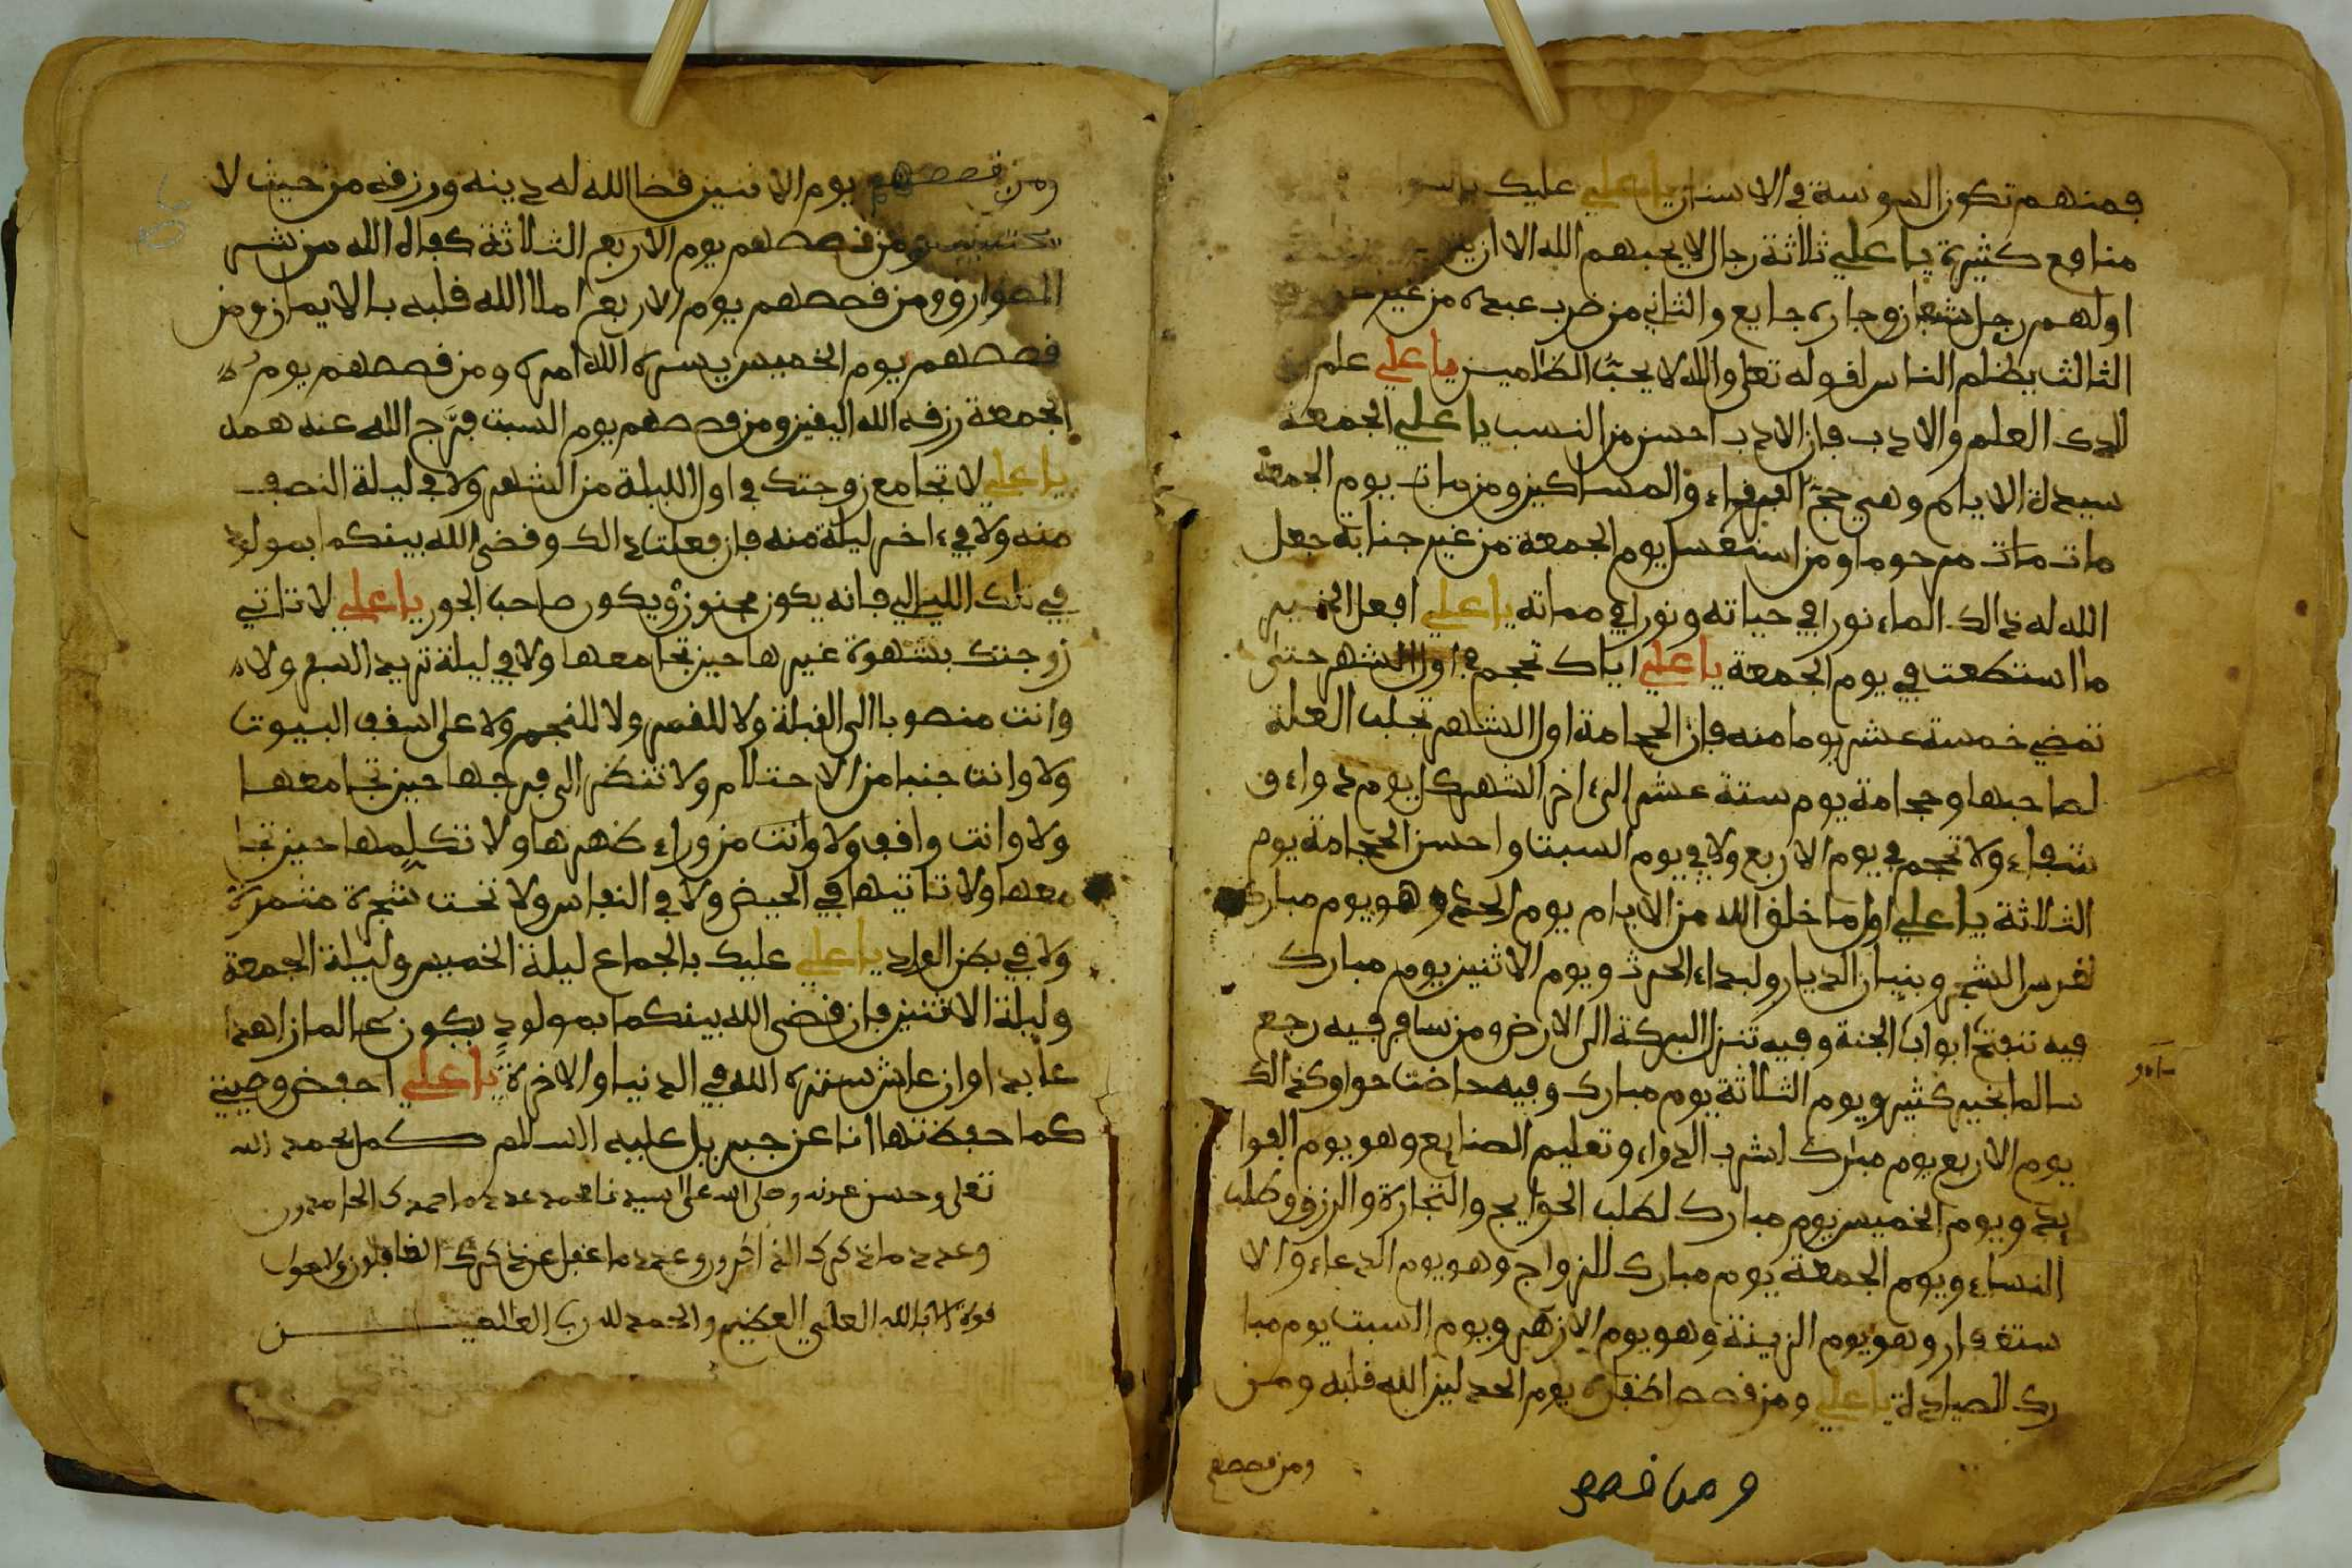 فمنهم تكون السوسة في الاسنان يا علي عليك
منافع كثيرة يا علي ثلاثة رجال لا يحبهم الله الا ان
اولهم رجل شبعان وجاره جايع والثاني من ضرب عبده من غير
الثالث يظلم الناس لقوله تعلى والله لا يحب الظالمين يا علي علم
العلم والادب فان الادب احسن من النسب يا علي الجمعة
سيدة الايام وهي حج الفقراء والمساكين ومن مات يوم الجمعة
مات مات مرحوما ومن استغسل يوم الجمعة من غير جنابة جعل
الله له ذالك الماء نورا في حياته ونورا في مماته يا علي افعل الخير
ما استطعت في يوم الجمعة يا علي اياك تحجم في اول الشهر حتى
تمضي خمسة عشر يوما منه فان الحجامة اول الشهر تجلب العلة
لصاحبها وحجامة يوم ستة عشر الى ءاخر الشهر كل يوم دواء و
شفاء ولا تحجم في يوم الاربع ولا في يوم السبت واحسن الحجامة يوم
الثلاثة يا علي اول ما خلق الله من الايام يوم الحد وهو يوم مبارك
لغرس الشجر وبنيان الديار ولبداء الحرث ويوم الاثنين يوم مبارك
فيه تنفتح ابواب الجنة وفيه تنزل البركة الى الارض ومن سافر فيه رجع
سالما بخير كثير ويوم الثلاثة يوم مبارك وفيه حاضت حوا وكذالك
يوم الاربع يوم مبارك لشرب الدواء وتعليم الصنايع وهو يوم الفوا
يد ويوم الخميس يوم مبارك لطلب الحوايج والتجارة والرزق وطلب
النساء ويوم الجمعة يوم مبارك للزواج وهو يوم الدعاء والا
ستغفار وهو يوم الزينة وهو يوم الازهر ويوم السبت يوم مبا
رك للصيادة يا علي ومن قصص اظفاره يوم الحد لين الله قلبه ومن
ومن قصصهم
ومن قصصهم
ومن قصصهم يوم الاثنين قضا الله له دينه ورزقه من حيث لا
يحتسب ومن قصصهم يوم الاربع الثلاثة كفاه الله من شر
الطوارق ومن قصصهم يوم الاربع املا الله قلبه بالايمان ومن
قصصهم يوم الخميس يسره الله امره ومن قصصهم يوم
الجمعة رزقه الله اليقين ومن قصصهم يوم السبت فرّج الله عنه همه
يا علي لا تجامع زوجتك في اول الليلة من الشهر ولا في ليلة النصف
منه ولا في ءاخر ليلة منه فان فعلت ذالك وقضى الله بينكما بمولود
في تلك الليالي فانه يكون مجنون ويكون صاحب الجور يا علي لا تاتي
زوجتك بشهوة غيرها حين تجامعها ولا في ليلة تريد السفر ولا
وانت منصوبا الى القبلة ولا للقمر ولا للنجم ولا على اسقف البيوت
ولا وانت جنبا من الاحتلام ولا تنظر الى فرجها حين تجامعها
ولا وانت واقف ولا وانت من وراء ظهرها ولا تكلمها حين تجا
معها ولا تاتيها في الحيض ولا في النفاس ولا تحت شجرة مثمرة
ولا في بطن الواد يا علي عليك بالجماع ليلة الخميس وليلة الجمعة
وليلة الاثنين فان قضى الله بينكما بمولود يكون عالما زاهدا
عابدا وان عاش ستره الله في الدنيا والاخرة يا علي احفظ وصيتي
كما حفظتها انا عن جبريل عليه السلام كمل الحمد لله
تعلى وحسن عونه وصلى الله على سيدنا محمد عدد ما حمدك الحامدون
وعدد ما ذكرك الذاكرون وعدد ما غفل عن ذكرك الغافلون ولا حول
قوة الا بالله العلي العظيم والحمد لله رب العالمين